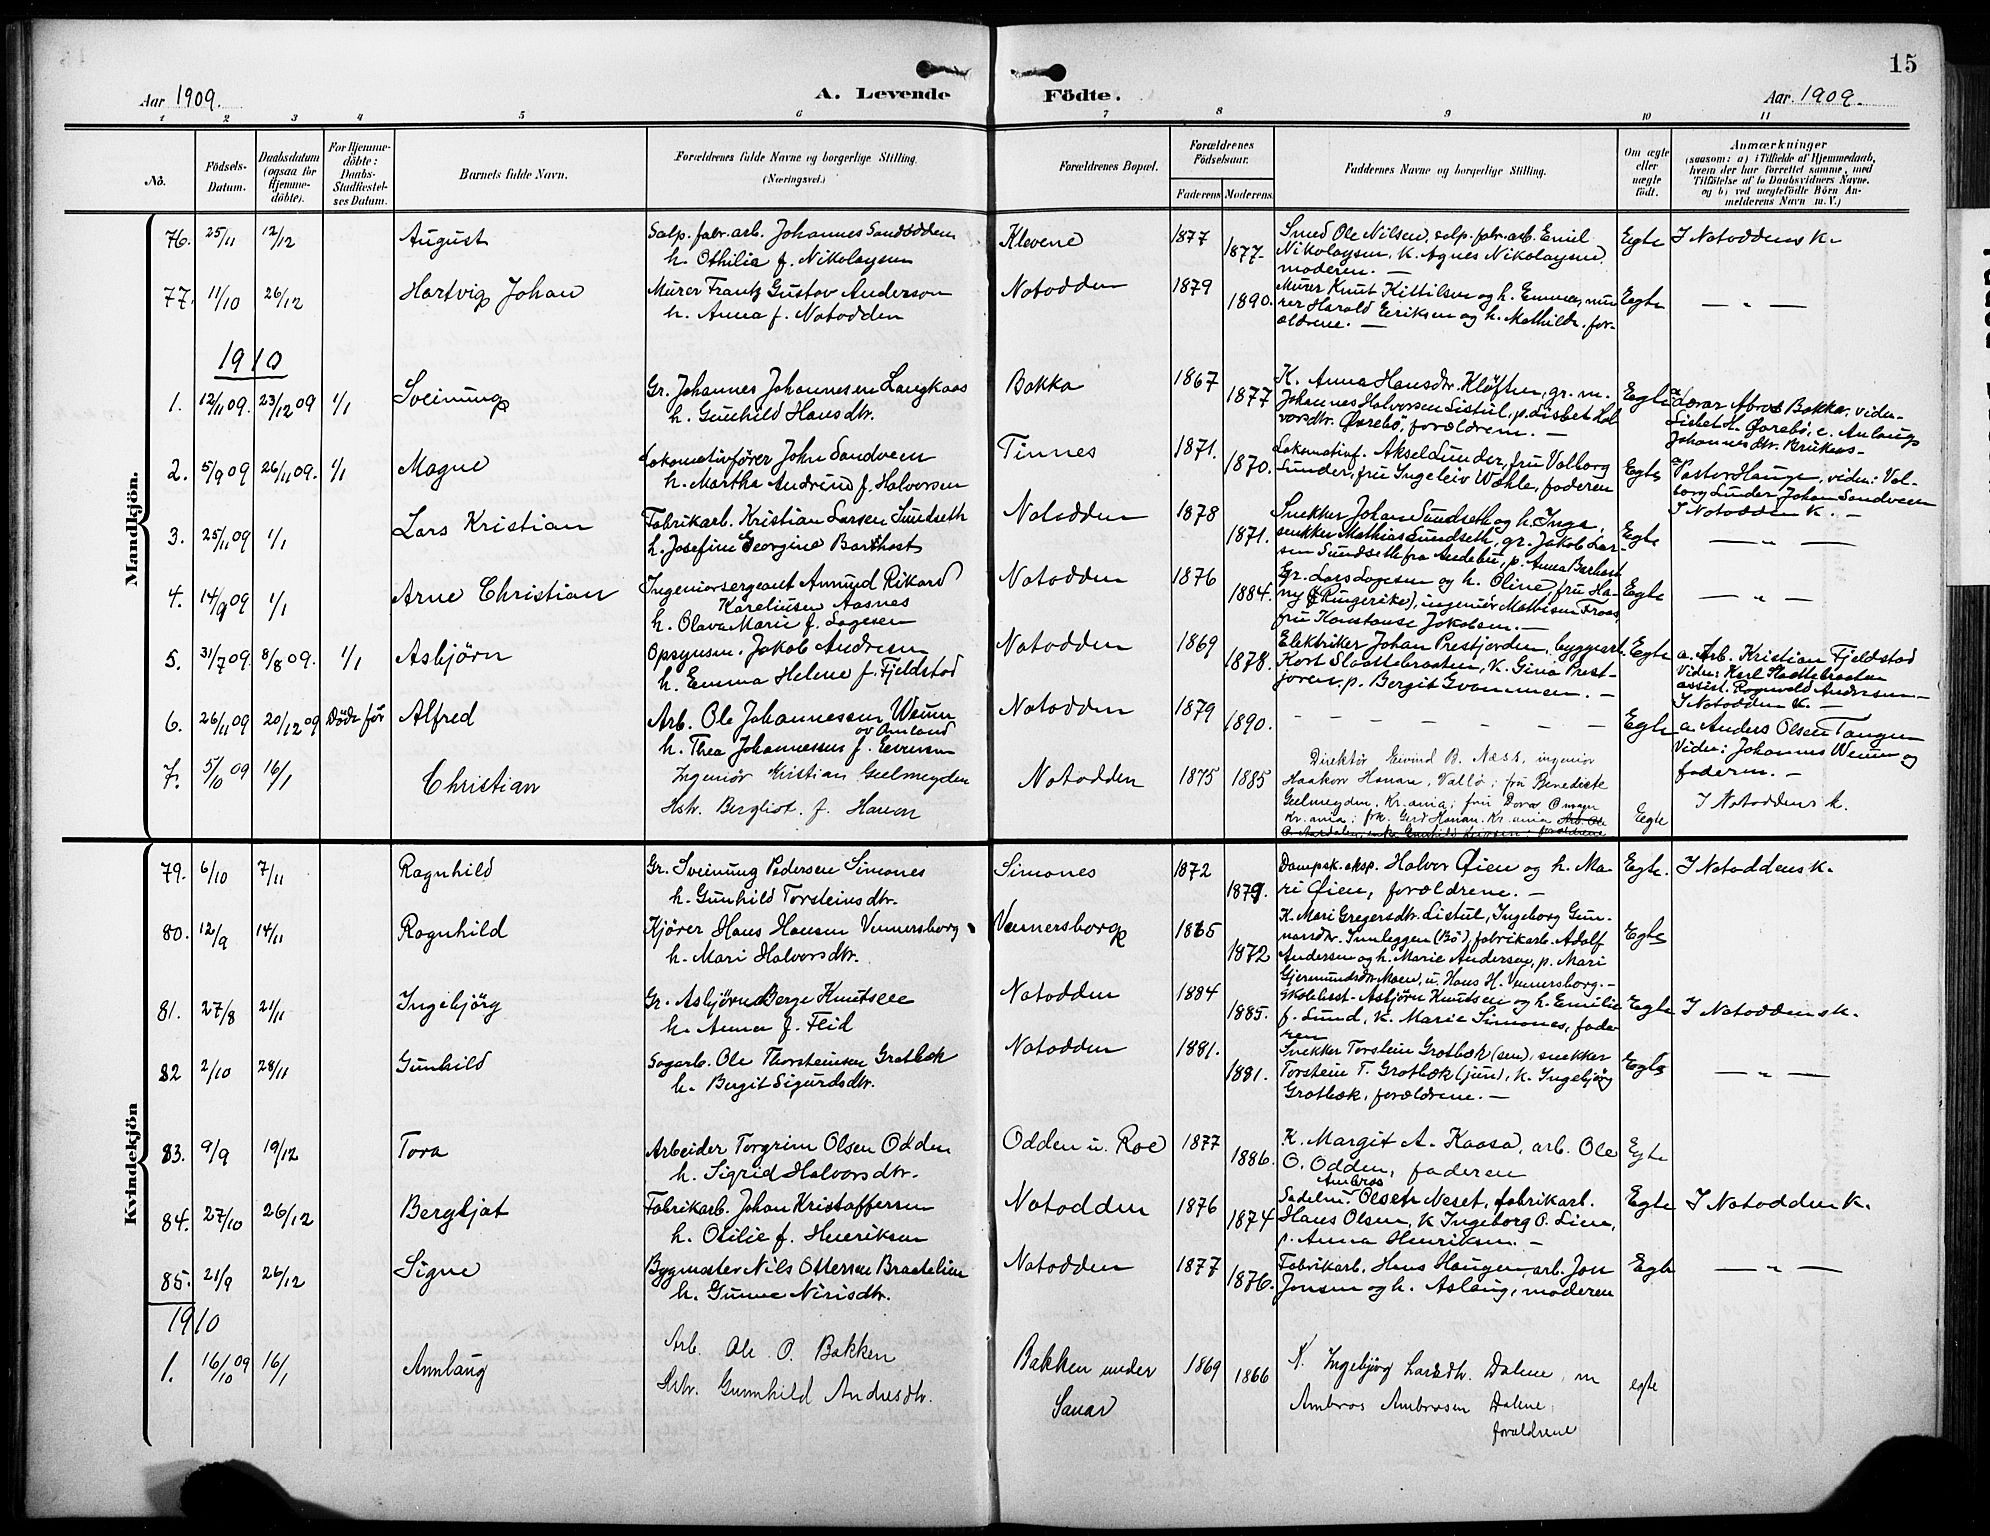 15
Aar 1909.
A. Levende
Födte.
Aar 1909.
1 2 3 4 5 6 7 8 9 10 11
No.
Födsels-
Datum.
Daabsdatum
(ogsaa for
Hjemme-
döbte).
For Hjemme-
döbte:
Daabs-
Stadfæstel-
ses Datum.
Barnets fulde Navn.
Forældrenes fulde Navne og borgerlige Stilling.
(Næringsvei.)
Forældrenes Bopæl.
Forældrenes
Födselsaar.
Faderens Moderens.
Faddernes Navne og borgerlige Stilling.
Om ægte
eller
uægte
født.
Anmærkninger
(saasom: a) i Tilfælde af Hjemmedaab,
hvem der har forrettet samme, med
Tilföielse af to Daabsvidners Navne,
og b) ved uægtefödte Börn An-
melderens Navn m. V.)
Mandkjön.
76. 25/11 12/12 August
Salp. fabr. arb. Johannes Sandodden
h. Othilia f. Nikolaysen
Klevene 1877 1877-
Smed Ole Nilsen, salp. fabr. arb. Emil
Nikolaysen, k. Agnes Nikolaysen,
moderen. —
Egte I Notoddens k.
77. 11/10 26/12 Hartvig Johan
Murer Frantz Gustav Anderson
h. Anna f. Notodden
Notodden 1879 1890.
Murer Knut Kittilsen og h. Emma, mu-
rer Harald Eeriksen og h. Mathilde, for-
ældrene. —
Egte — " —
1910
1. 12/11 09. 23/12 09 1/1 Sveinung
Gr. Johannes Johannesen Langkaas
h. Gunhild Hansdtr.
Bakka 1867 1877
K. Anna Hansdtr. Kløften, gr. m.
Johannes Halvorsen Listul, p. Lisbet Hal-
vorsdtr. Øvrebö, forældrene. —
Egte a Lærar Abros Bakka, viden-
Lisbet H. Øvrebö, e. Anlaug
Johannesdtr. Brukaas —
2. 5/9 09 26/11 09. 1/1 Magne
Lokomotivfører John Sandveen
h. Martha Andrine f. Halvorsen
Tinnes 1871. 1870.
Lokomotivf. Aksel Lunder, fru Valborg
Lunder, fru Ingeleiv Wahle, faderen
Egte a Pastor Hauge, viden: Val-
borg Lunder, Johan Sandveen
I Notodden k. —
3. 25/11 09 1/1 Lars Kristian
Fabrikarb. Kristian Larsen Sundseth
h. Josefine Georgine Barthost
Notodden 1878 1871.
Snekker Johan Sundseth og h. Inga,
snekker Mathias Sundseth, gr. Jakob Lar-
sen Sundseth fra Andebu, p. Anna Barhost
Egte — " —
4. 14/9 09 1/1 Arne Christian
Ingeniorsergeant Amund Rikard
Kareliusen Aasnes
h. Olava Marie f. Lagesen
Notodden 1876 1884.
Gr. Lars Lagesen og h. Oline, fru Ha-
ny (Ringerike), ingeniør Mathisen Fraas,
fru Konstanse Jakobsen. —
Egte — " —
5. 31/7 09. 8/8 09. 1/1 Asbjörn
Opsynsm. Jakob Andresen
h. Emma Helene f. Fjeldstad
Notodden 1869 1878.
Elektriker Johan Prestjorden, byggearb.
Kort Slaattebraaten, k. Gina Prest-
joren, p. Bergit Gvammen. —
Egte a. Arb. Kristian Fjeldstad
Viden: Karl Slaattebraaten
assist. Ragnvald Andersen —
I Notodden k. —
6. 26/11 09 20/12 09 Döde för Alfred
Arb. Ole Johannessen Weum
av Omland
h. Thea Johannessen f. Evensen
Notodden 1879 1890.
— — — — — — —
Egte a. Anders Olsen Tangen
Viden: Johannes Weum og
faderen. —
7. 5/10 09 16/1 Christian
Ingeniør Kristian Geelmeyden
Hstr. Bergliot f. Hanon
Notodden 1875 1885
Direktør Eivind B. Næss, ingenior
Haakon Hanan, Vallø; fru Benedikte
Geelmeyden, Kr.ania; fru Dora
Kr.ania; frk. Gerd Hanan, Kr.ania
Egte I Notoddens k.
Kvindekjön
79. 6/10 7/11 Ragnhild
Gr. Sveinung Pedersen Simones
h. Gunhild Torsteinsdtr.
Simones 1872 1879.
Dampsk. eksp. Halvor Øien og h. Ma-
ri Øien, forældrene. —
Egte. I Notoddens k.
80. 12/9 14/11 Ragnhild
Kjörer Hans Hansen Vennersborg
h. Mari Halvorsdtr.
Vennersborg 1865 1872
K. Mari Gregersdtr. Listul, Ingeborg Gun-
narsdtr. Innleggen (Bö), fabrikarb. Adolf
Andersen og h. Marie Andersen, p. Mari
Gjermundsdtr. Moen, u. Hans H. Vennersborg. —
Egte
81. 27/8 21/11 Ingebjörg
Gr. Asbjörn Berge Knutsen
h. Anna f. Flid
Notodden 1884 1885.
Skolebest. Asbjörn Knutsen og h. Emilie
f. Lund, k. Marie Simones, fade-
ren
Egte I Notoddens k.
82 2/10 28/11 Gunhild
Sagarb. Ole Thorsteinsen Grotbæk
h. Bergit Sigurdsdtr.
Notodden 1881. 1881.
Snekker Torstein Grotbæk (sen), snekker
Torstein T. Grotbæk (jun), k. Ingebjörg
Grotbæk, forældrene. —
Egte — " —
83. 9/9 19/12 Tora
Arbeider Torgrim Olsen Odden
h. Sigrid Halvorsdtr.
Odden u. Roe 1877 1886.
K. Margit A. Kaasa, arb. Ole
O. Odden, faderen
Egte
84. 27/10 26/12 Bergljot
Fabrikarb. Johan Kristoffersen
h. Otilie f. Henriksen
Notodden 1876 1874
Ambros
Sadelm. Olsen Neset, fabrikarb.
Hans Olsen, k Ingeborg O. Lien,
p. Anna Henriksen. —
Egte I Notodden k.
85. 21/9 26/12 Signe
Bygmester Nils Ottersen Braatelien
h. Gunne Nirisdtr.
Notodden 1877 1876.
Fabrikarb. Hans Haugen, arb. Jon
Jonsen og h. Aslaug, moderen
Egte — " —
1910
1. 16/10 09 16/1 Annlaug
Arb. Ole O. Bakken
Hstr. Gunnhild Andresdtr.
Bakken under
Sauar
1869 1866
K. Ingebjörg Larsdtr. Dalene, m
Ambros Ambrosen Dalene,
forældrene
egte